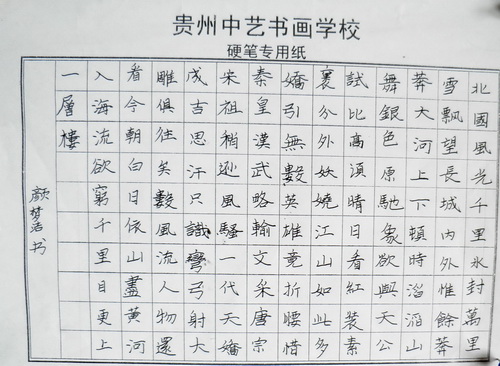 贵州中艺书画学校
硬笔专用纸
北國風光千里氷封萬里
雪飄望長城内外惟餘莽
莽大河上下頓時滔滔山
舞銀色原馳象欲與天公
試比高須晴日看紅裝素
裹分外妖嬈江山如此多
嬌引無數英雄竟折腰惜
秦皇漢武略輸文采唐宗
宋祖稍逊風騷一代天嬌
成吉思汗只識彎弓射大
雕俱往矣數風流人物還
看今朝白日依山盡黄河
入海流欲窮千里目更上
一層樓
颜梦洁书